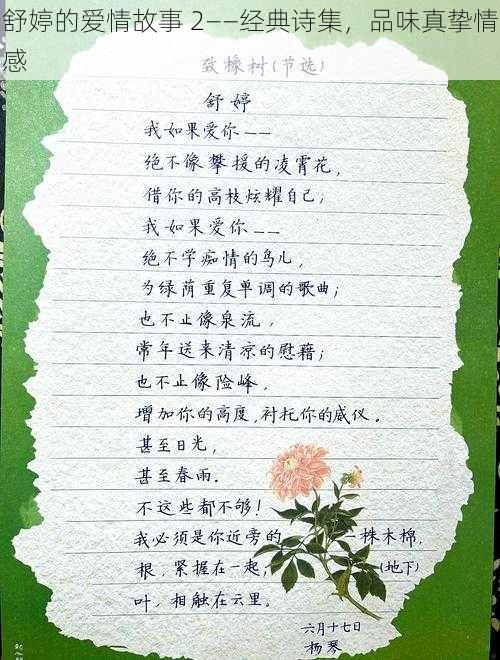 舒婷的爱情故事 2——经典诗集，品味真挚情
感
致橡树(节选)
舒婷
我如果爱你——
绝不像攀援的凌霄花，
借你的高枝炫耀自己；
我如果爱你——
绝不学痴情的鸟儿，
为绿荫重复单调的歌曲；
也不止像泉流，
常年送来清凉的慰藉；
也不止像险峰，
增加你的高度，衬托你的威仪。
甚至日光，
甚至春雨。
不这些都不够！
我必须是你近旁的 一株木棉，
根，紧握在一起， (地下)
叶，相触在云里。
六月十七日
杨琴